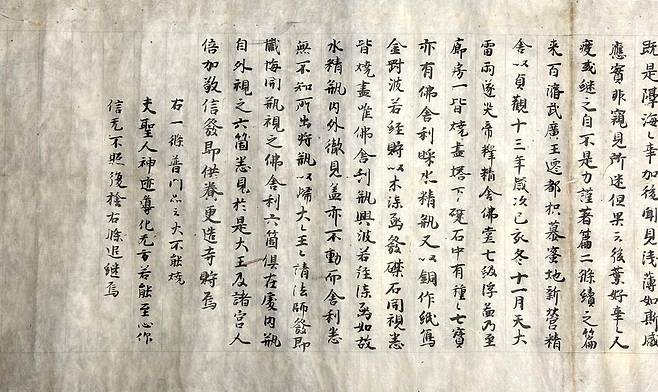 既是隣海之士加復聞見淺薄如斯感
應實非窺見所迷但杲云後葉好事之人
廢或繼之自不是力謹著篇二條續之篇
末百濟武廣王遷都枳慕蜜地新營精
舍以貞觀十三年歲次己亥冬十一月天大
雷雨遂災帝釋精舍佛堂七級浮圖乃至
廊房一皆燒盡塔下礎石中有種〻七寶
亦有佛舍利睬水精甁又以銅作紙寫
金剛波若經貯以木漆函發礎石開視悉
皆燒盡唯佛舍利甁與波若經漆函如故
水精甁內外徹見盖亦不動而舍利悉
無不知所出將甁以歸大〻王〻請法師發卽
懺悔開甁視之佛舍利六箇俱在處內甁
自外視之六箇悉見於是大王及諸宮人
倍加敬信發卽供養更造寺貯焉
右一條普門品云火不能燒
夫聖人神迹導化无方若能至心仰
信无不照復撿右條追継焉